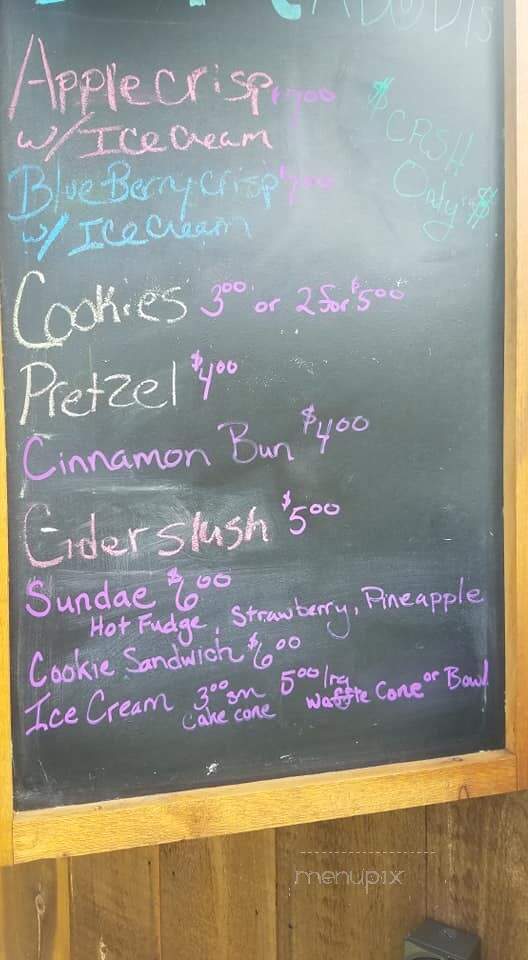 Apple crisp $7.00
w/ Ice Cream
Blue Berry crisp $7.00
w/ Ice Cream
$ CASH
Only $
Cookies 3.00 or 2 for $5.00
Pretzel $4.00
Cinnamon Bun $4.00
Cider slush $5.00
Sundae $6.00
Hot Fudge, Strawberry, Pineapple
Cookie Sandwich $6.00
Ice Cream 3.00 sm 5.00 lrg
cake cone waffle Cone or Bowl
menupix